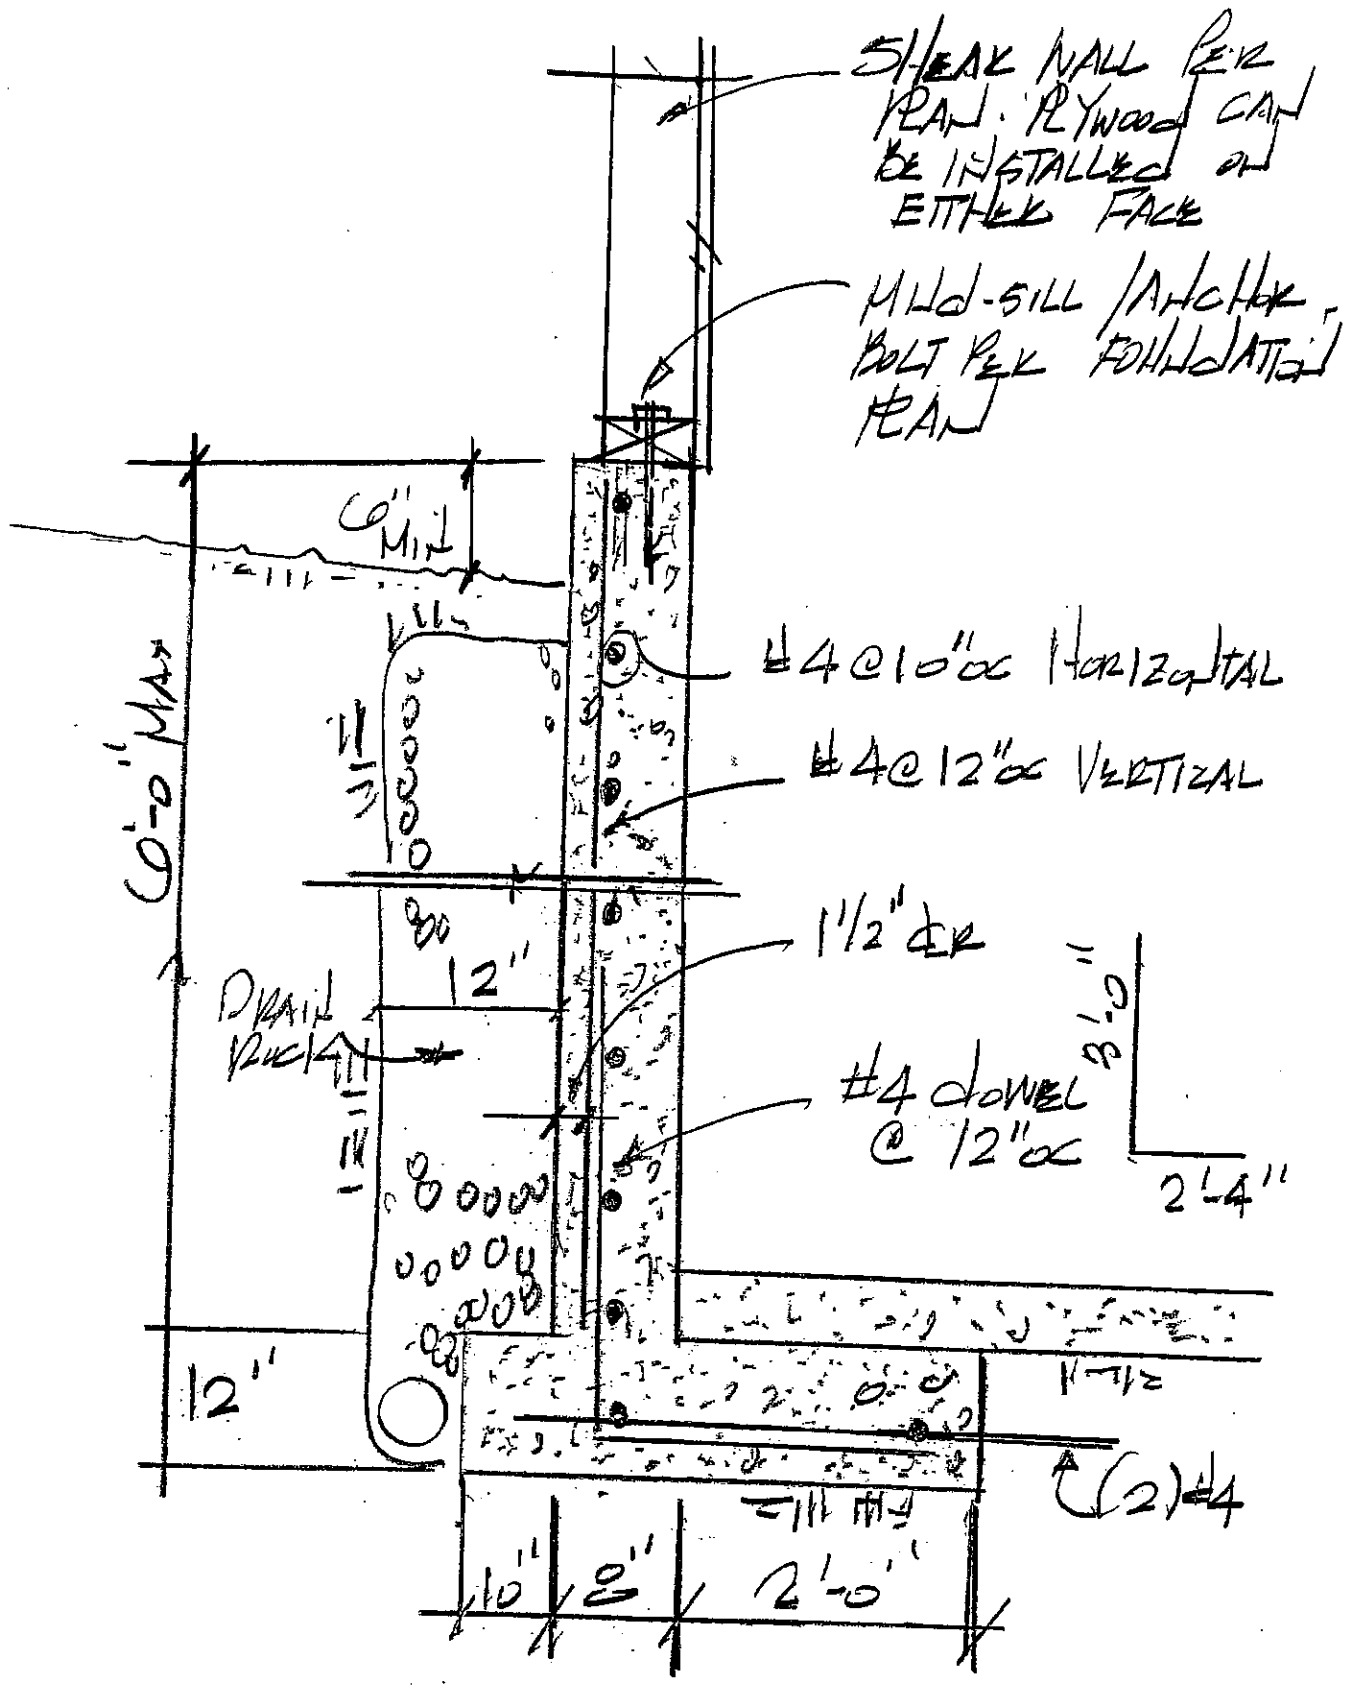 SHEAR WALL PER
PLAN. PLYWOOD CAN
BE INSTALLED ON
EITHER FACE
MUD-SILL / ANCHOR
BOLT PER FOUNDATION
PLAN
6"
MIN
6'-0" MAX
#4 @ 10" OC HORIZONTAL
#4 @ 12" OC VERTICAL
1 1/2" CLR
12"
DRAIN
ROCK
#4 DOWEL
@ 12" OC
3'-0"
2'-4"
12"
(2) #4
10"
8"
2'-0"